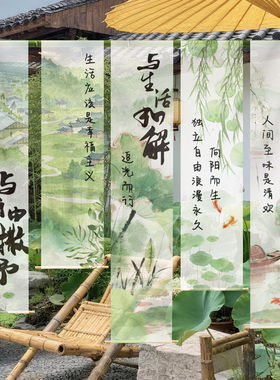 与自由撒野
生活应该是幸福主义
与生活和解
追光而行
向阳而生
独立自由浪漫永久
人间至味是清欢